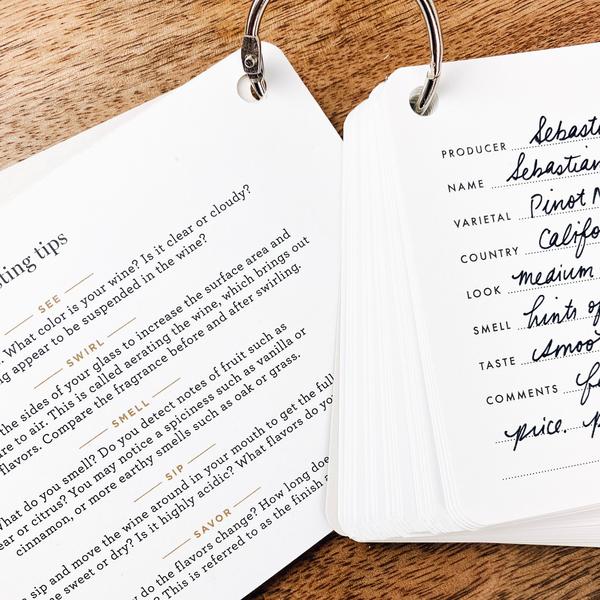 ting tips
SEE
What color is your wine? Is it clear or cloudy?
appear to be suspended in the wine?
SWIRL
the sides of your glass to increase the surface area and
to air. This is called aerating the wine, which brings out
flavors. Compare the fragrance before and after swirling.
SMELL
What do you smell? Do you detect notes of fruit such as
or citrus? You may notice a spiciness such as vanilla or
cinnamon, or more earthy smells such as oak or grass.
SIP
sip and move the wine around in your mouth to get the full
sweet or dry? Is it highly acidic? What flavors do
SAVOR
do the flavors change? How long
This is referred to as the finish
PRODUCER Sebasti
NAME Sebastian
VARIETAL Pinot N
COUNTRY Califo
LOOK medium
SMELL hints of
TASTE smoo
COMMENTS
price.